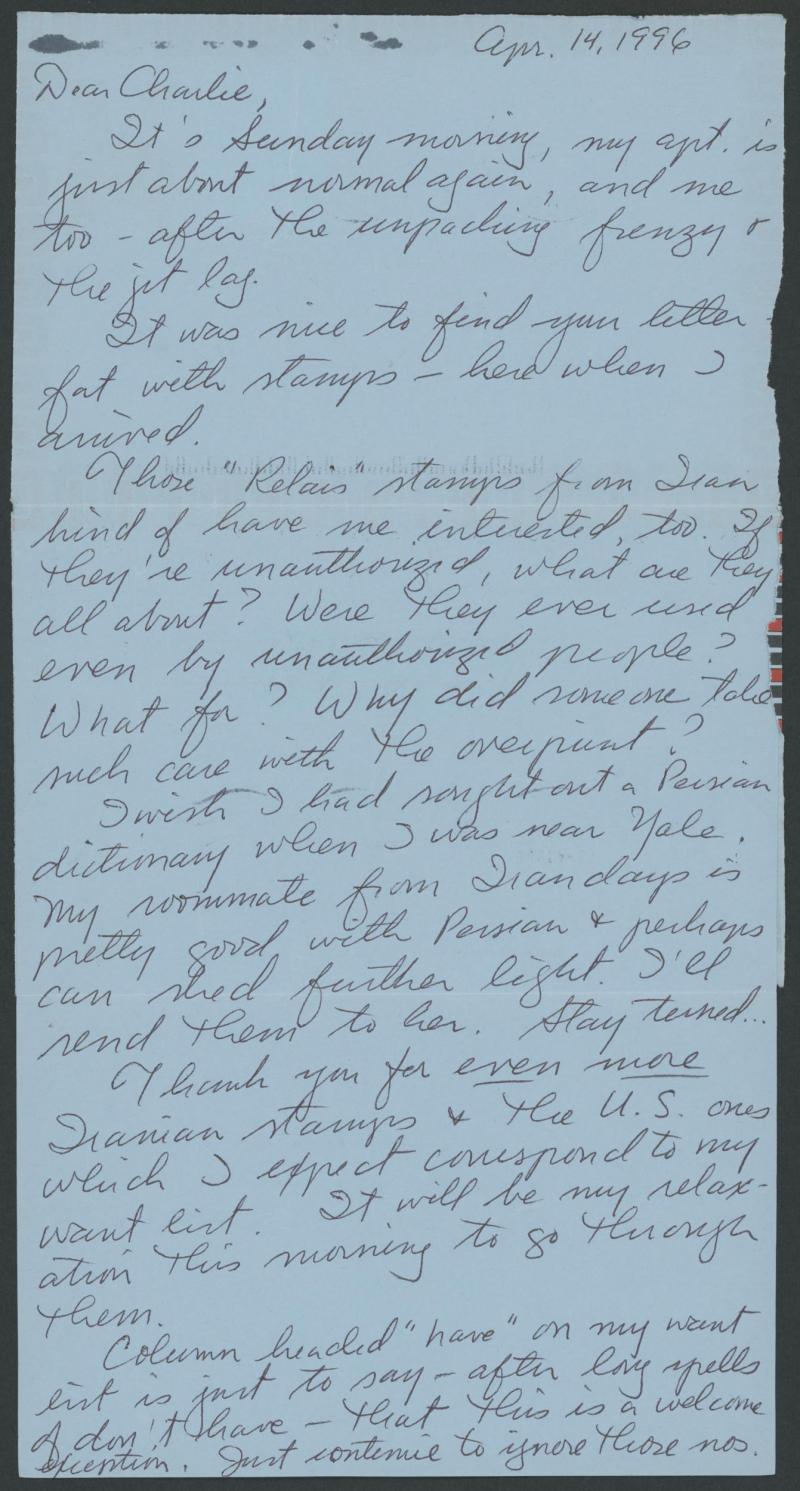 Apr. 14, 1996
Dear Charlie,
It's Sunday morning, my apt. is
just about normal again, and me
too - after the unpacking frenzy &
the jet lag.
It was nice to find your letter -
fat with stamps - here when I
arrived.
Those "Relais" stamps from Iran
kind of have me interested, too. If
they're unauthorized, what are they
all about? Were they ever used
even by unauthorized people?
What for? Why did someone take
such care with the overprint?
I wish I had sought out a Persian
dictionary when I was near Yale.
My roommate from Iran days is
pretty good with Persian & perhaps
can shed further light. I'll
send them to her. Stay tuned...
Thank you for even more
Iranian stamps & the U.S. ones
which I expect correspond to my
want list. It will be my relax-
ation this morning to go through
them.
Column headed "have" on my want
list is just to say - after long spells
of don't have - that this is a welcome
exception. Just continue to ignore those nos.